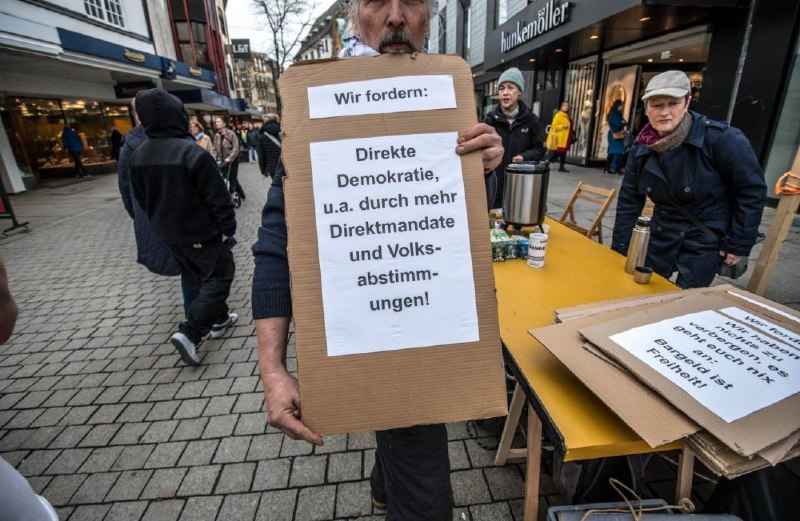 hunkemöller
L&T
Wir fordern:
Direkte
Demokratie,
u.a. durch mehr
Direktmandate
und Volks-
abstimm-
ungen!
DANKE
Wir ford
Wir haben
nichts zu
verbergen, es
geht euch nix
an:
Bargeld ist
Freiheit!